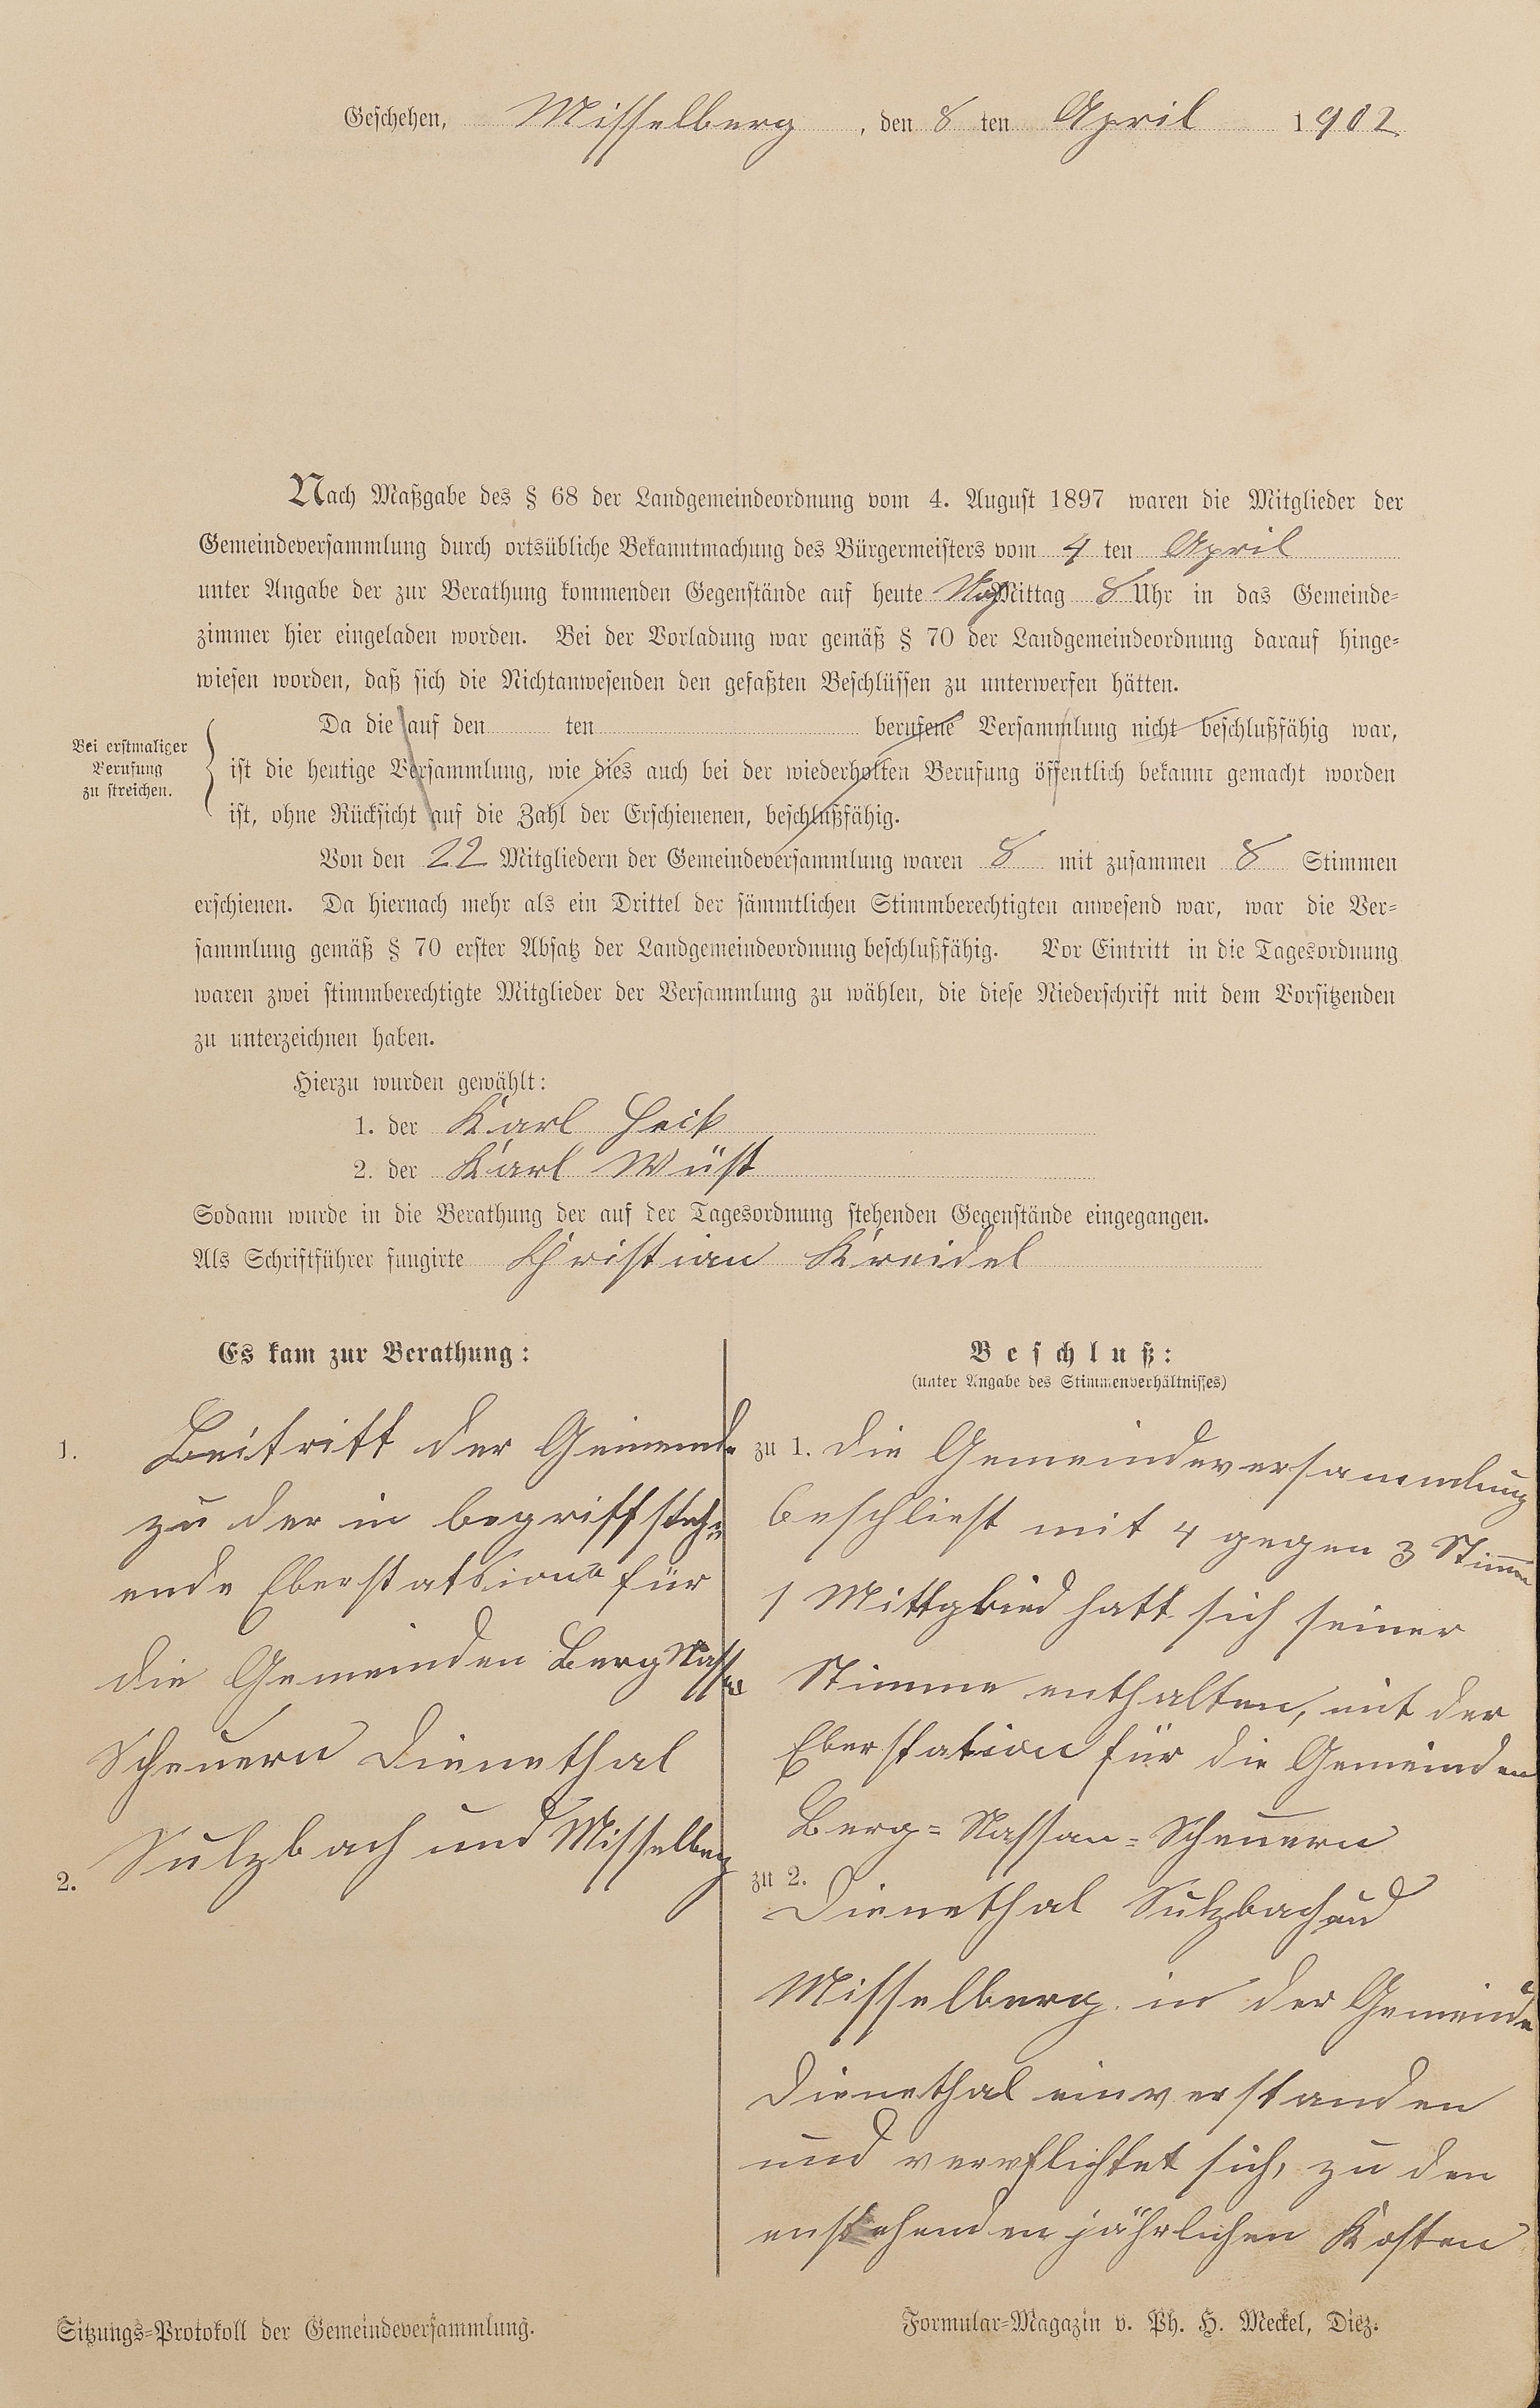 Geschehen, Misselberg, den 8 ten April 1902
Nach Maßgabe des § 68 der Landgemeindeordnung vom 4. August 1897 waren die Mitglieder der
Gemeindeversammlung durch ortsübliche Bekanntmachung des Bürgermeisters vom 4 ten April
unter Angabe der zur Berathung kommenden Gegenstände auf heute NachMittag 8 Uhr in das Gemeinde=
zimmer hier eingeladen worden. Bei der Vorladung war gemäß § 70 der Landgemeindeordnung darauf hinge=
wiesen worden, daß sich die Nichtanwesenden den gefaßten Beschlüssen zu unterwerfen hätten.
Bei erstmaliger
Berufung
zu streichen.
Da die auf den ten berufene Versammlung nicht beschlußfähig war,
ist die heutige Versammlung, wie dies auch bei der wiederholten Berufung öffentlich bekannt gemacht worden
ist, ohne Rücksicht auf die Zahl der Erschienenen, beschlußfähig.
Von den 22 Mitgliedern der Gemeindeversammlung waren 8 mit zusammen 8 Stimmen
erschienen. Da hiernach mehr als ein Drittel der sämmtlichen Stimmberechtigten anwesend war, war die Ver=
sammlung gemäß § 70 erster Absatz der Landgemeindeordnung beschlußfähig. Vor Eintritt in die Tagesordnung
waren zwei stimmberechtigte Mitglieder der Versammlung zu wählen, die diese Niederschrift mit dem Vorsitzenden
zu unterzeichnen haben.
Hierzu wurden gewählt:
1. der Karl
2. der Karl Wüst
Sodann wurde in die Berathung der auf der Tagesordnung stehenden Gegenstände eingegangen.
Als Schriftführer fungirte Christian Kreidel
Es kam zur Berathung:
1. Beitritt der Gemeinde
zu der in begriff steh=
ende Eberstation für
die Gemeinden Berg Nassau
Scheuern Dienethal
Sulzbach und Misselberg
2.
Beschluß:
(unter Angabe des Stimmenverhältnisses)
zu 1. Die Gemeindeversammlung
beschliest mit 4 gegen 3 Stimmen
1 Mittglied hatt sich seiner
Stimme enthalten, mit der
Eberstation für die Gemeinden
Berg=Nassau=Scheuern
zu 2.
Dienethal Sulzbach und
Misselberg in der Gemeinde
Dienethal einverstanden
und verpflichtet sich, zu den
enstehenden jährlichen Kosten
Sitzungs=Protokoll der Gemeindeversammlung.
Formular=Magazin v. Ph. H. Meckel, Diez.